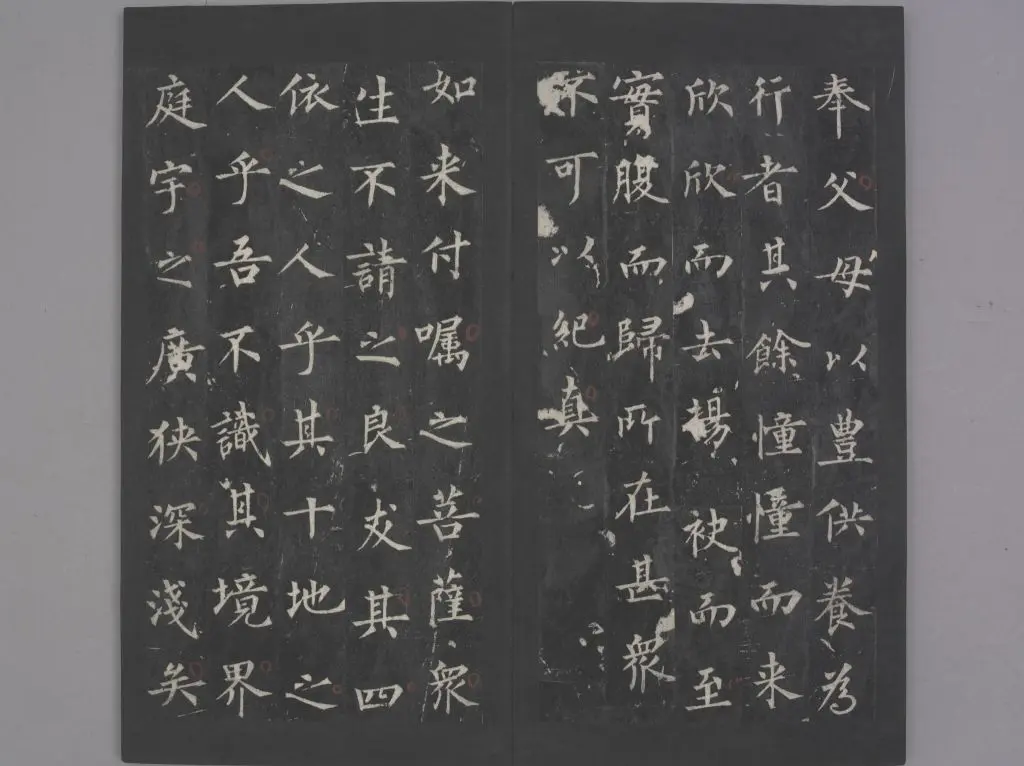 奉父母以豊供養為
行者其餘憧憧而来
欣欣而去揚袂而至
實腹而歸所在甚衆
不可以紀真
如来付嘱之菩薩衆
生不請之良友其四
依之人乎其十地之
人乎吾不識其境界
庭宇之廣狹深淺矣